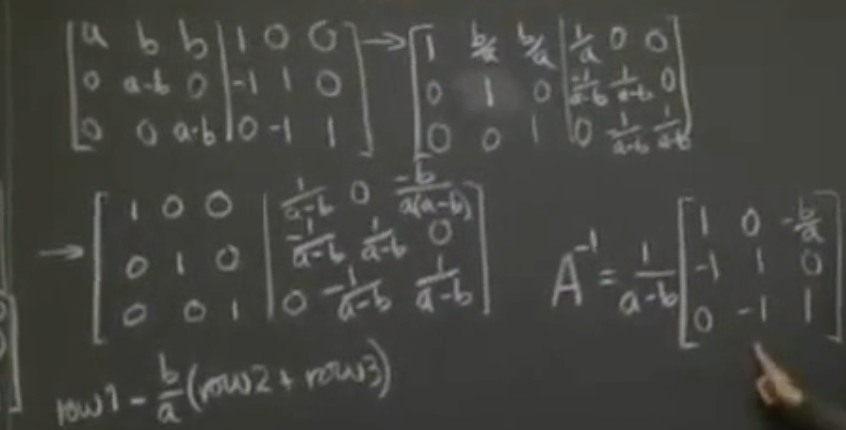 [a b b | 1 0 0] → [1 b/a b/a | 1/a 0 0]
[0 a-b 0 | -1 1 0] [0 1 0 | -1/a-b 1/a-b 0]
[0 0 a-b | 0 -1 1] [0 0 1 | 0 -1/a-b 1/a-b]
→ [1 0 0 | 1/a-b 0 -b/a(a-b)]
[0 1 0 | -1/a-b 1/a-b 0]
[0 0 1 | 0 -1/a-b 1/a-b]
A⁻¹ = 1/a-b [1 0 -b/a]
[-1 1 0]
[0 -1 1]
row1 - b/a (row2 + row3)